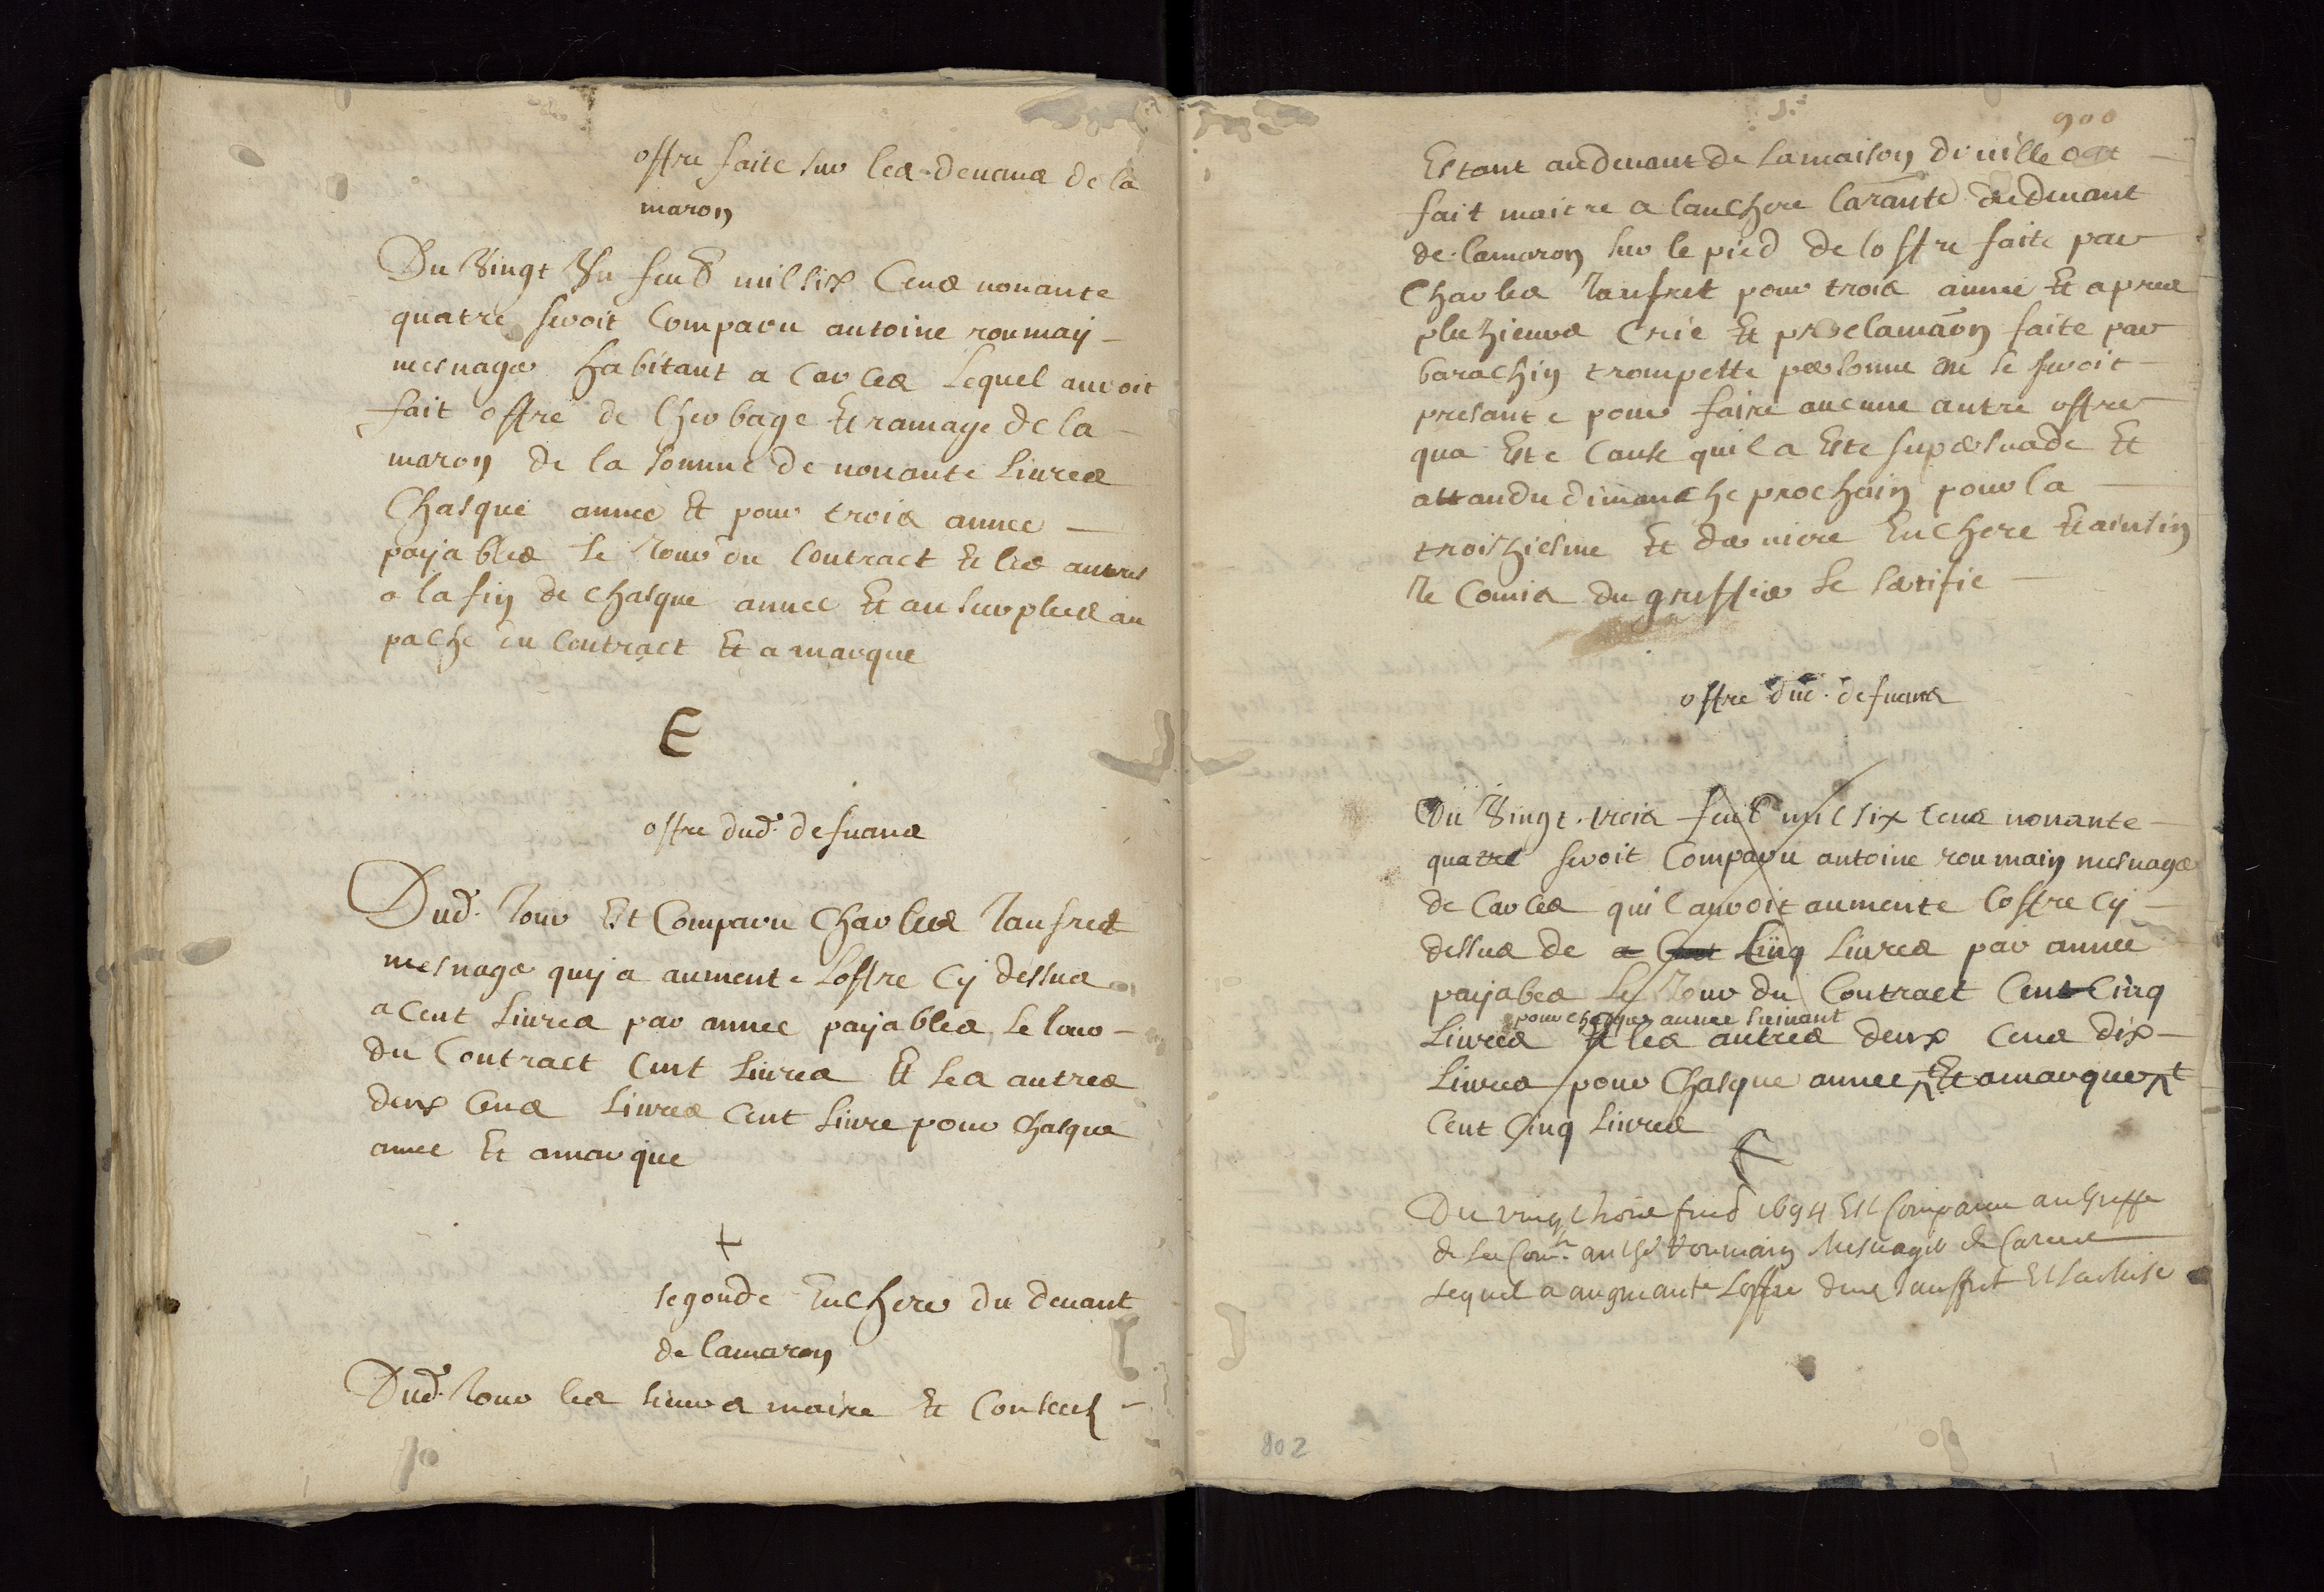 offre faite sur les devans de la
maron
Du vingt un feu&er mil six cens nonante
quatre seroit comparu antoine roumay
mesnager habitant a carces lequel auroit
fait offre de lherbage et ramage de la
maron de la somme de nonante livres
chasque annee et pour trois annee
payables le jour du contract et les autres
a la fin de chasque annee et au surplus au
pache du contract et a marque
E
offre dud. desuans
Dud. jour est comparu charles jaufret
mesnager quy a aumente loffre cy dessus
a cent livres par annee payables le jour
du contract cent livres et les autres
deux cens livres cent livre pour chasque
annee et a marque
+
segonde enchere du devant
de lamaron
Dud. jour les sieurs maire et conseuls
900
Estant au devant de la maison de ville ont
fait maitre a lanchere larante du devant
de lamaron sur le pied de loffre faite par
charles jaufret pour trois annee et apres
pluzieurs crie et proclamaon faite par
barachin trompette personne ne se seroit
presante pour faire aucune autre offre
qua este cause quil a este supersuade et
attandu dimanche prochain pour la
troiziesme et derniere enchere et ainsin
je comis du greffier le sertifie
offre dud. desuans
Du vingt trois feu mil six cens nonante
quatre seroit comparu antoine roumain mesnager
de carces quil auroit aumente loffre cy
dessus de a cent cinq livres par annee
payabes le jour du contract cent cinq
pour chasque annee suivant
livres et les autres deux cens dix
livres pour chasque annee et a marque
cent cinq livres
E
Du vingt trois 1694 est comparu au greffe
de la com.te anthe roumain mesnager de carces
lequel a augmante loffre dud jauffret et sa mise
802